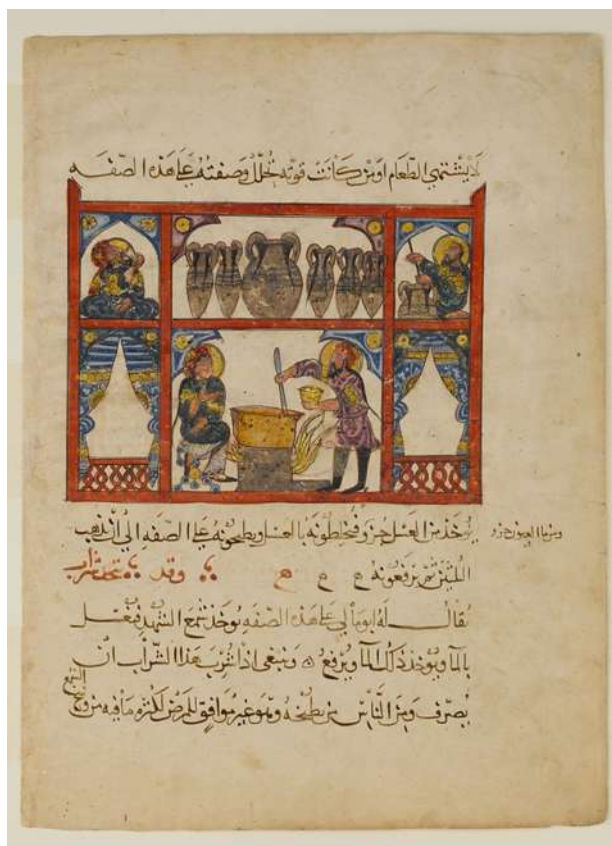 لا يشتهي الطعام او من كانت قوته تخلل وصفته على هذه الصفه
يوخذ من العسل جزو فيخلطونه بالعسل ويطبخونه على الصفه الى ان يذهب
ومن ماء العيون جزو
الثلثين ثم يرفعونه ح ح ح وقد يتخذ شراب
يقال له ابومالي على هذه الصفه يوخذ شمع الشهد فيغسل
بالما ويوخذ ذلك الما ويرفع وينبغي اذا شرب هذا الشراب ان
يصرف ومن الناس من يطبخه وهو غير موافق للمرض لكثره ما فيه من
الشمع